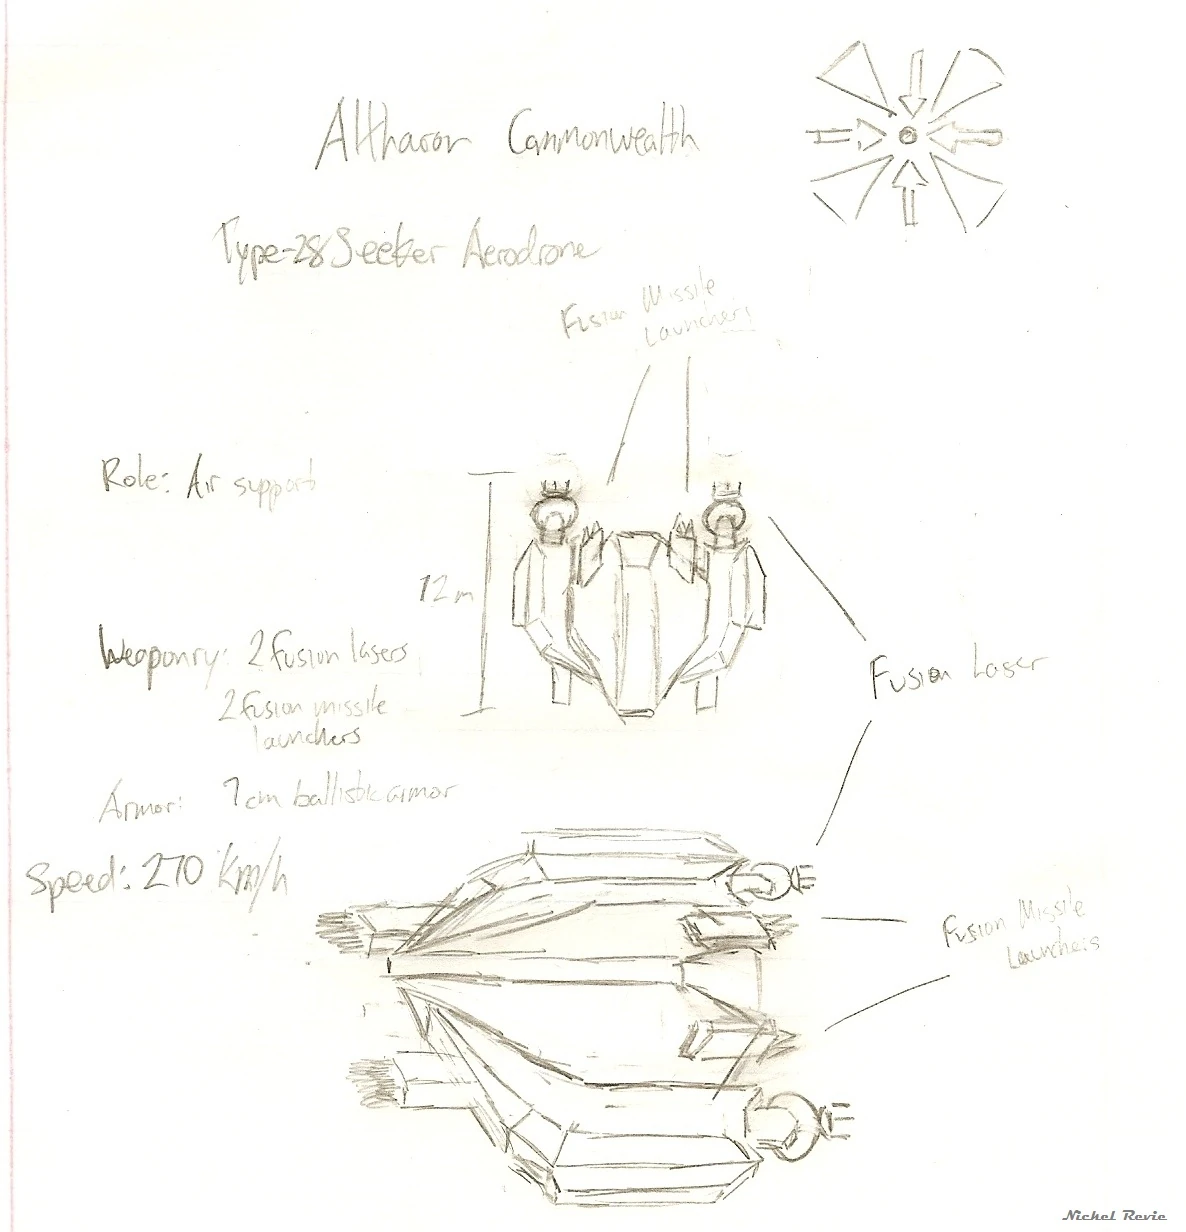 Altharor Commonwealth
Type-28 Seeker Aerodrone
Fusion Missile
Launchers
Role: Air support
12 m
Weaponry: 2 fusion lasers
2 fusion missile
launchers
Fusion Laser
Armor: 7cm ballistic armor
Speed: 270 Km/h
Fusion Missile
Launchers
Nichol Revie